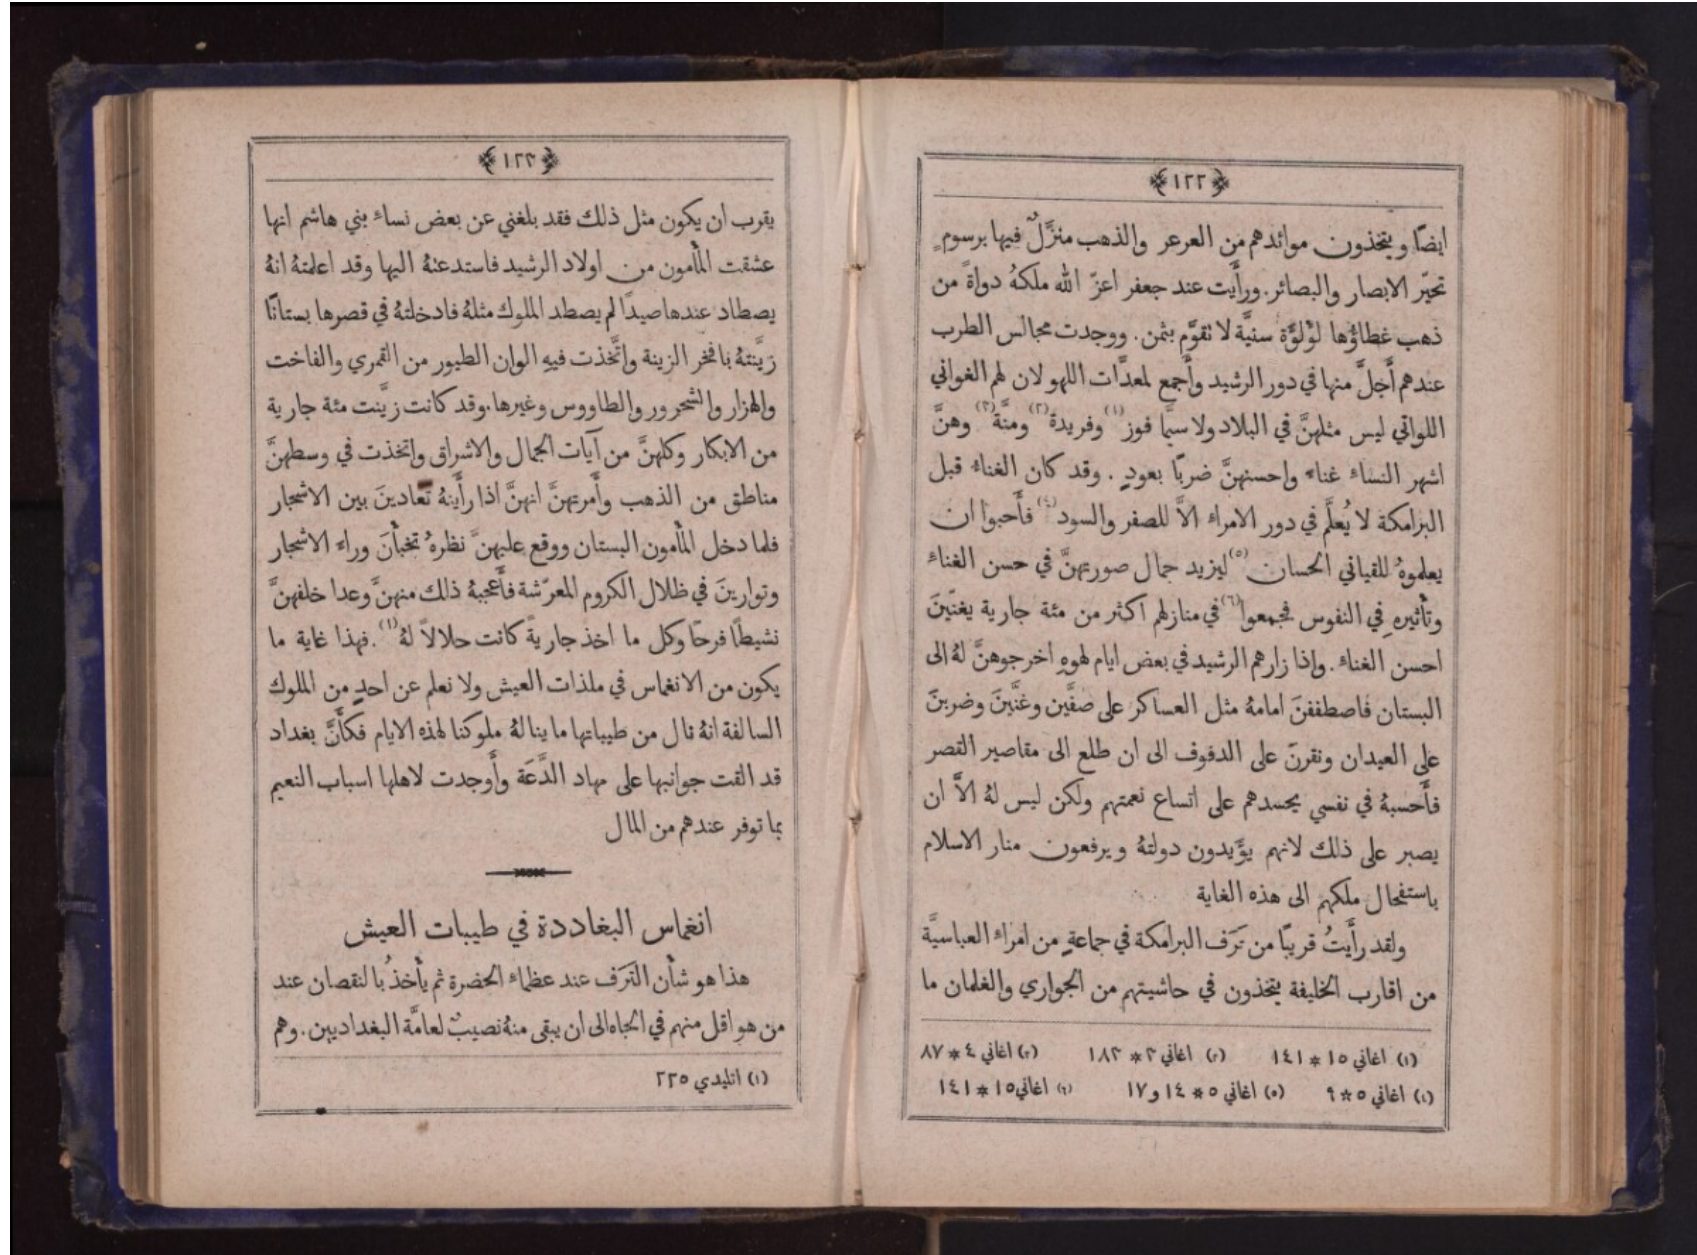 ﴿١٢٢﴾
ايضًا ويتخذون موائدهم من العرعر والذهب منزَّلٌ فيها برسومٍ
تحيّر الابصار والبصائر. ورأَيت عند جعفر اعزّ الله ملكهُ دواةً من
ذهب غطاؤُها لؤْلؤَة سنيَّة لا تقوَّم بثمن. ووجدت مجالس الطرب
عندهم أَجلَّ منها في دور الرشيد وأَجمع لمعدَّات اللهو لان لهم الغواني
اللواتي ليس مثلهنَّ في البلاد ولا سيَّما فوز(١) وفريدة(٢) ومنَّة(٣) وهنَّ
اشهر النساء غناء واحسنهنَّ ضربًا بعودٍ . وقد كان الغناء قبل
البرامكة لا يُعلَّم في دور الامراء الاَّ للصفر والسود(٤) فأَحبوا ان
يعلموهُ للقياني الحسان (٥) ليزيد جمال صورتهنَّ في حسن الغناء
وتأثيرهِ في النفوس فجمعوا(٦) في منازلهم اكثر من مئة جارية يغنّينَ
احسن الغناء . وإذا زارهم الرشيد في بعض ايام لهوهِ اخرجوهنَّ لهُ الى
البستان فاصطففنَ امامهُ مثل العساكر على صفَّين وغنَّينَ وضربنَ
على العيدان ونقرنَ على الدفوف الى ان طلع الى مقاصير القصر
فأَحسبهُ في نفسي يحسدهم على اتساع نعمتهم ولكن ليس لهُ الاَّ ان
يصبر على ذلك لانهم يؤَيدون دولتهُ ويرفعون منار الاسلام
باستفحال ملكهم الى هذه الغاية
ولقد رأَيتُ قريبًا من تَرَف البرامكة في جماعةٍ من امراء العباسيَّة
من اقارب الخليفة يتخذون في حاشيتهم من الجواري والغلمان ما
(١) اغاني ١٥ * ١٤١ (٢) اغاني ٣ * ١٨٣ (٣) اغاني ٤ * ٨٧
(٤) اغاني ٥ * ٩ (٥) اغاني ٥ * ١٤ و١٧ (٦) اغاني ١٥ * ١٤١
﴿١٢٣﴾
يقرب ان يكون مثل ذلك فقد بلغني عن بعض نساء بني هاشم انها
عشقت المأمون من اولاد الرشيد فاستدعتهُ اليها وقد اعلمتهُ انهُ
يصطاد عندها صيدًا لم يصطد الملوك مثلهُ فادخلتهُ في قصرها بستانًا
زيَّنتهُ بافخر الزينة واتَّخذت فيهِ الوان الطيور من القمري والفاخت
والهزار والشحرور والطاووس وغيرها. وقد كانت زيَّنت مئة جارية
من الابكار وكلهنَّ من آيات الجمال والاشراق واتخذت في وسطهنَّ
مناطق من الذهب وأَمرتهنَّ انهنَّ اذا رأَينهُ تَعادينَ بين الاشجار
فلما دخل المأمون البستان ووقع عليهنَّ نظرهُ تخبأنَ وراء الاشجار
وتوارينَ في ظلال الكروم المعرّشة فأَعجبهُ ذلك منهنَّ وعدا خلفهنَّ
نشيطًا فرحًا وكل ما اخذ جاريةً كانت حلالاً لهُ(١). فهذا غاية ما
يكون من الانغماس في ملذات العيش ولا نعلم عن احدٍ من الملوك
السالفة انهُ نال من طيباتها ما ينالهُ ملوكنا لهذه الايام فكأَنَّ بغداد
قد القت جوانبها على مهاد الدَّعَة وأَوجدت لاهلها اسباب النعيم
بما توفر عندهم من المال
انغماس البغاددة في طيبات العيش
هذا هو شأن التَرَف عند عظماء الحضرة ثم يأخذُ بالنقصان عند
من هو اقل منهم في الجاه الى ان يبقى منهُ نصيبٌ لعامَّة البغداديين. وهم
(١) اتليدي ٢٢٥